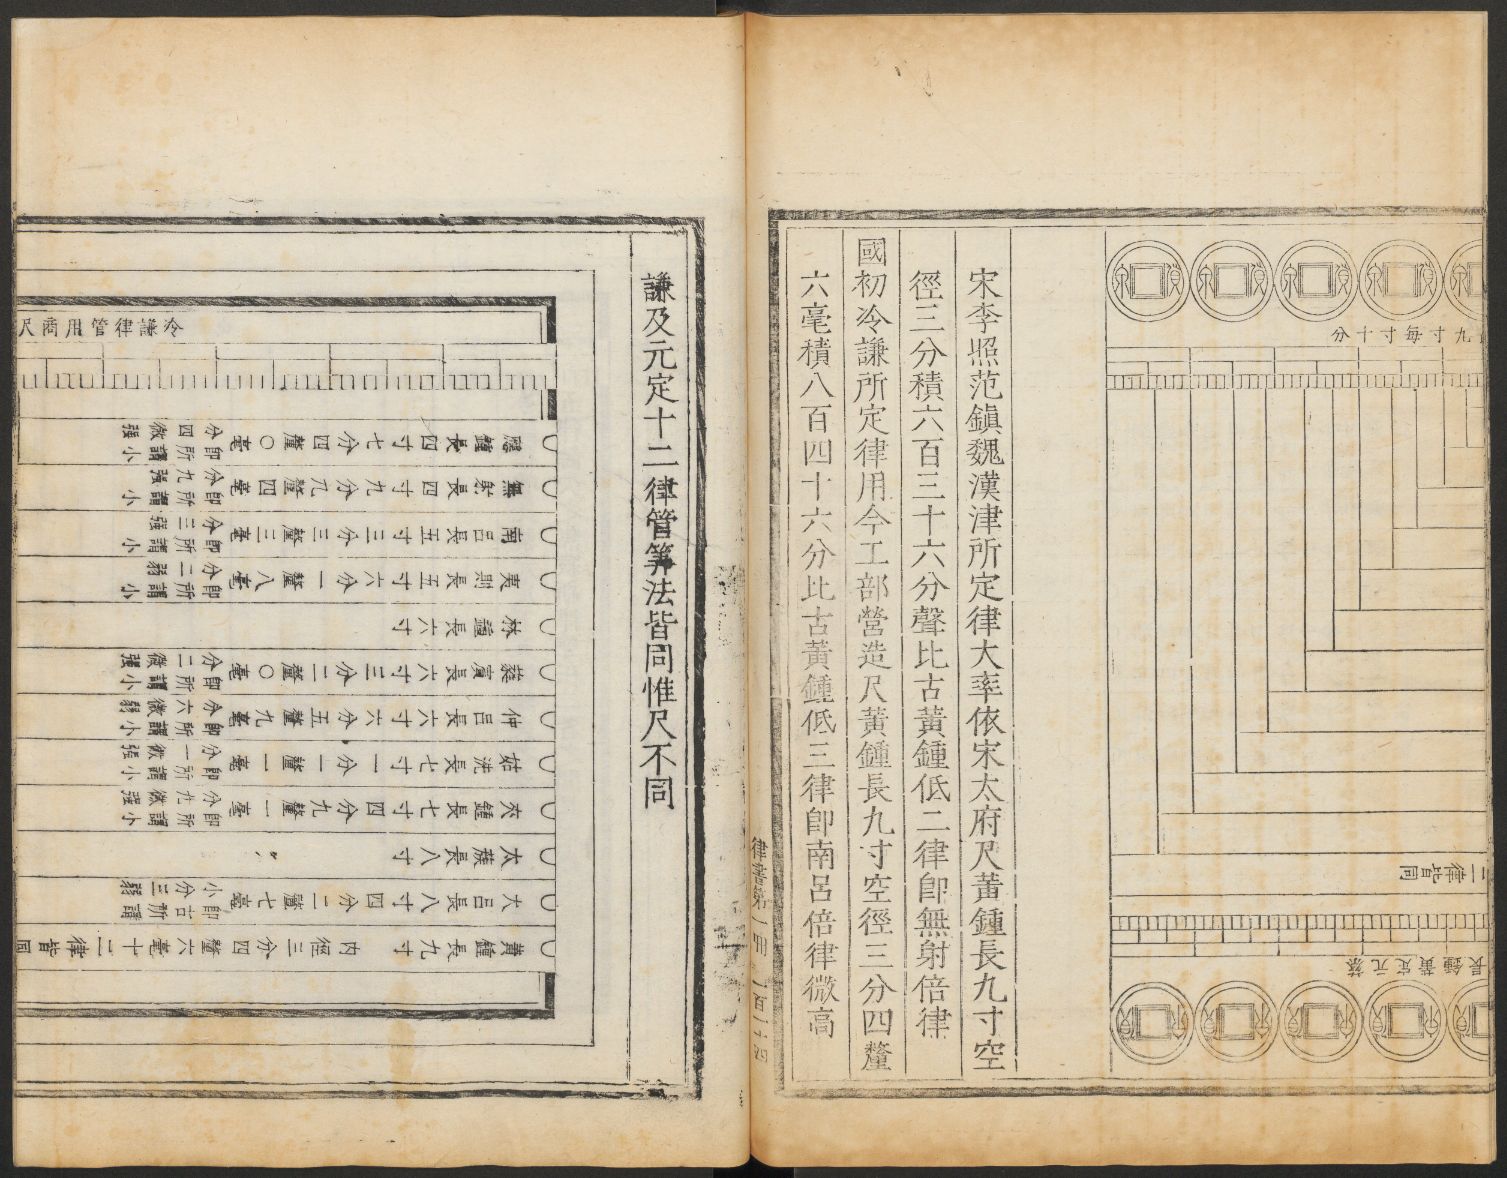 九寸每寸十分
二律皆同
蔡元定黃鍾長
宋李照范鎮魏漢津所定律大率依宋太府尺黃鍾長九寸空
徑三分積六百三十六分聲比古黃鍾低二律卽無射倍律
國初冷謙所定律用今工部營造尺黃鍾長九寸空徑三分四釐
六毫積八百四十六分比古黃鍾低三律卽南呂倍律微高
謙及元定十二律管筭法皆同惟尺不同
冷謙律管用商尺
應鍾長四寸七分四釐〇毫卽所謂小分四微强
無射長四寸九分九釐四毫卽所謂小分九强
南呂長五寸三分三釐三毫卽所謂小分三强
夷則長五寸六分一釐八毫卽所謂小分二弱
林鍾長六寸
蕤賓長六寸三分二釐〇毫卽所謂小分二微强
仲呂長六寸六分五釐九毫卽所謂小分六微弱
姑洗長七寸一分一釐一毫卽所謂小分一微强
夾鍾長七寸四分九釐一毫卽所謂小分九微强
太蔟長八寸
大呂長八寸四分二釐七毫卽古所謂小分三弱
黃鍾長九寸 內徑三分四釐六毫十二律皆同